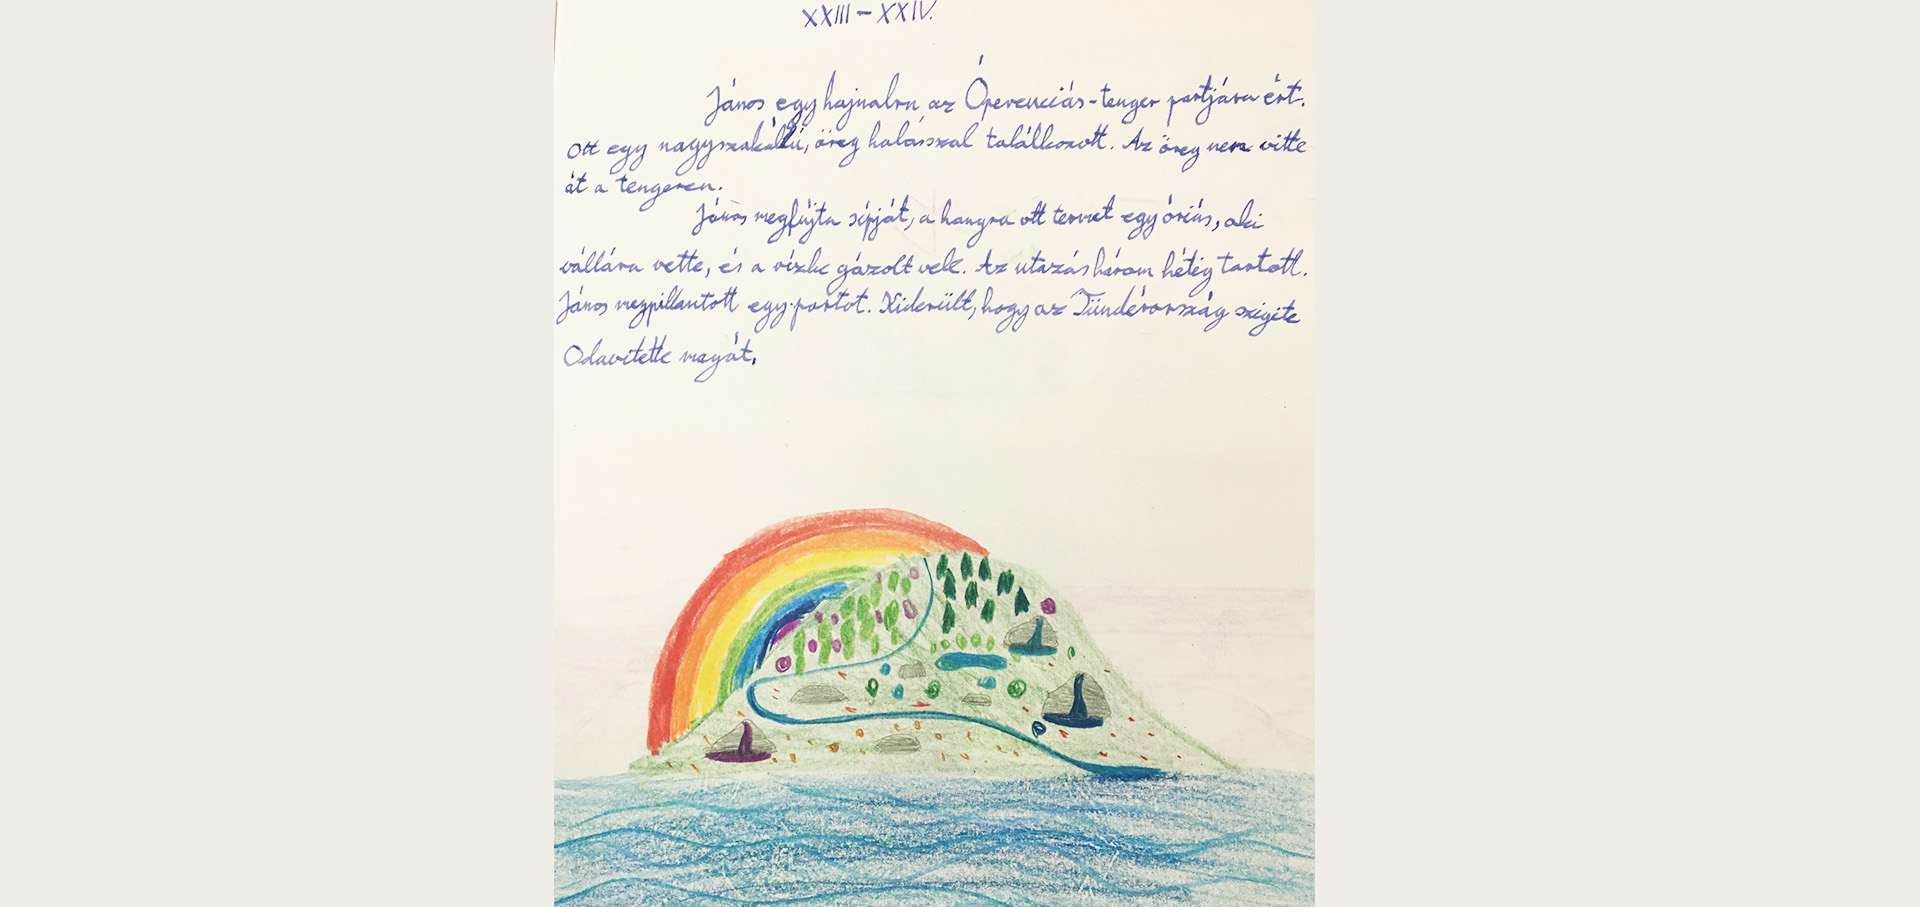 XXIII – XXIV.
János egy hajnalra az Óperenciás-tenger partjára ért.
Ott egy nagyszakállú, öreg halásszal találkozott. Az öreg nem vitte
át a tengeren.
János megfújta sípját, a hangra ott termet egy óriás, aki
vállára vette, és a vízbe gázolt vele. Az utazás három hétig tartott.
János megpillantott egy partot. Kiderült, hogy az Tündérország szigete
Odavitette magát.